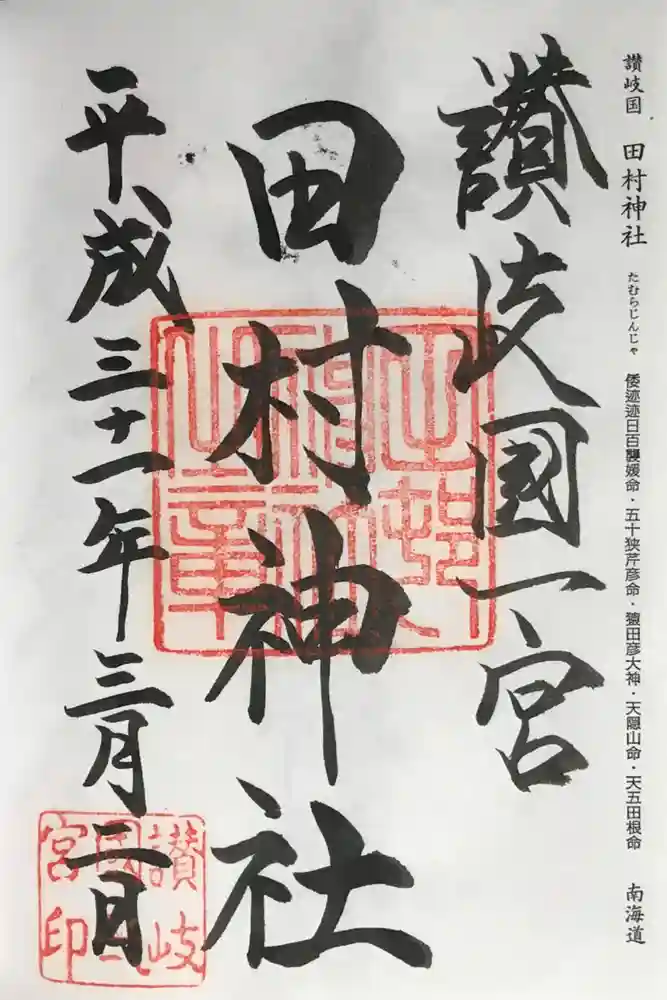 讃岐国 田村神社 たむらじんじゃ 倭迹迹日百襲媛命・五十狭芹彦命・猿田彦大神・天隠山命・天五田根命 南海道
讃岐國一宮
田村神社
平成三十一年三月二日
田村
神社
之章
讃岐
宮印